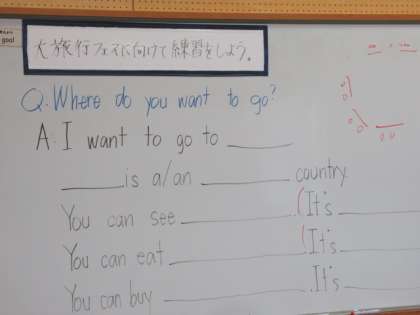 goal
大旅行フェスに向けて練習をしよう。
Q. Where do you want to go?
A. I want to go to ______
______ is a/an ______ country.
You can see ______. (It's ______
You can eat ______. (It's ______
You can buy ______. It's ______